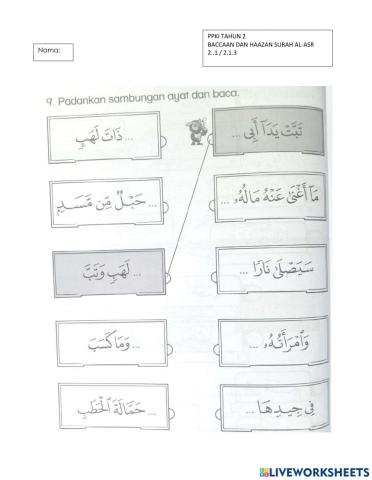 PPKI TAHUN 2
BACCAAN DAN HAAZAN SURAH AL-ASR
2..1 / 2.1.3
Nama:
9. Padankan sambungan ayat dan baca.
... ذَاتَ لَهَبٍ
تَبَّتْ يَدَآ أَبِى ...
... حَبْلٌ مِّن مَّسَدٍ
مَآ أَغْنَىٰ عَنْهُ مَالُهُۥ ...
... لَهَبٍ وَتَبَّ
سَيَصْلَىٰ نَارًا ...
... وَمَا كَسَبَ
وَٱمْرَأَتُهُۥ ...
... حَمَّالَةَ ٱلْحَطَبِ
فِى جِيدِهَا ...
LIVEWORKSHEETS